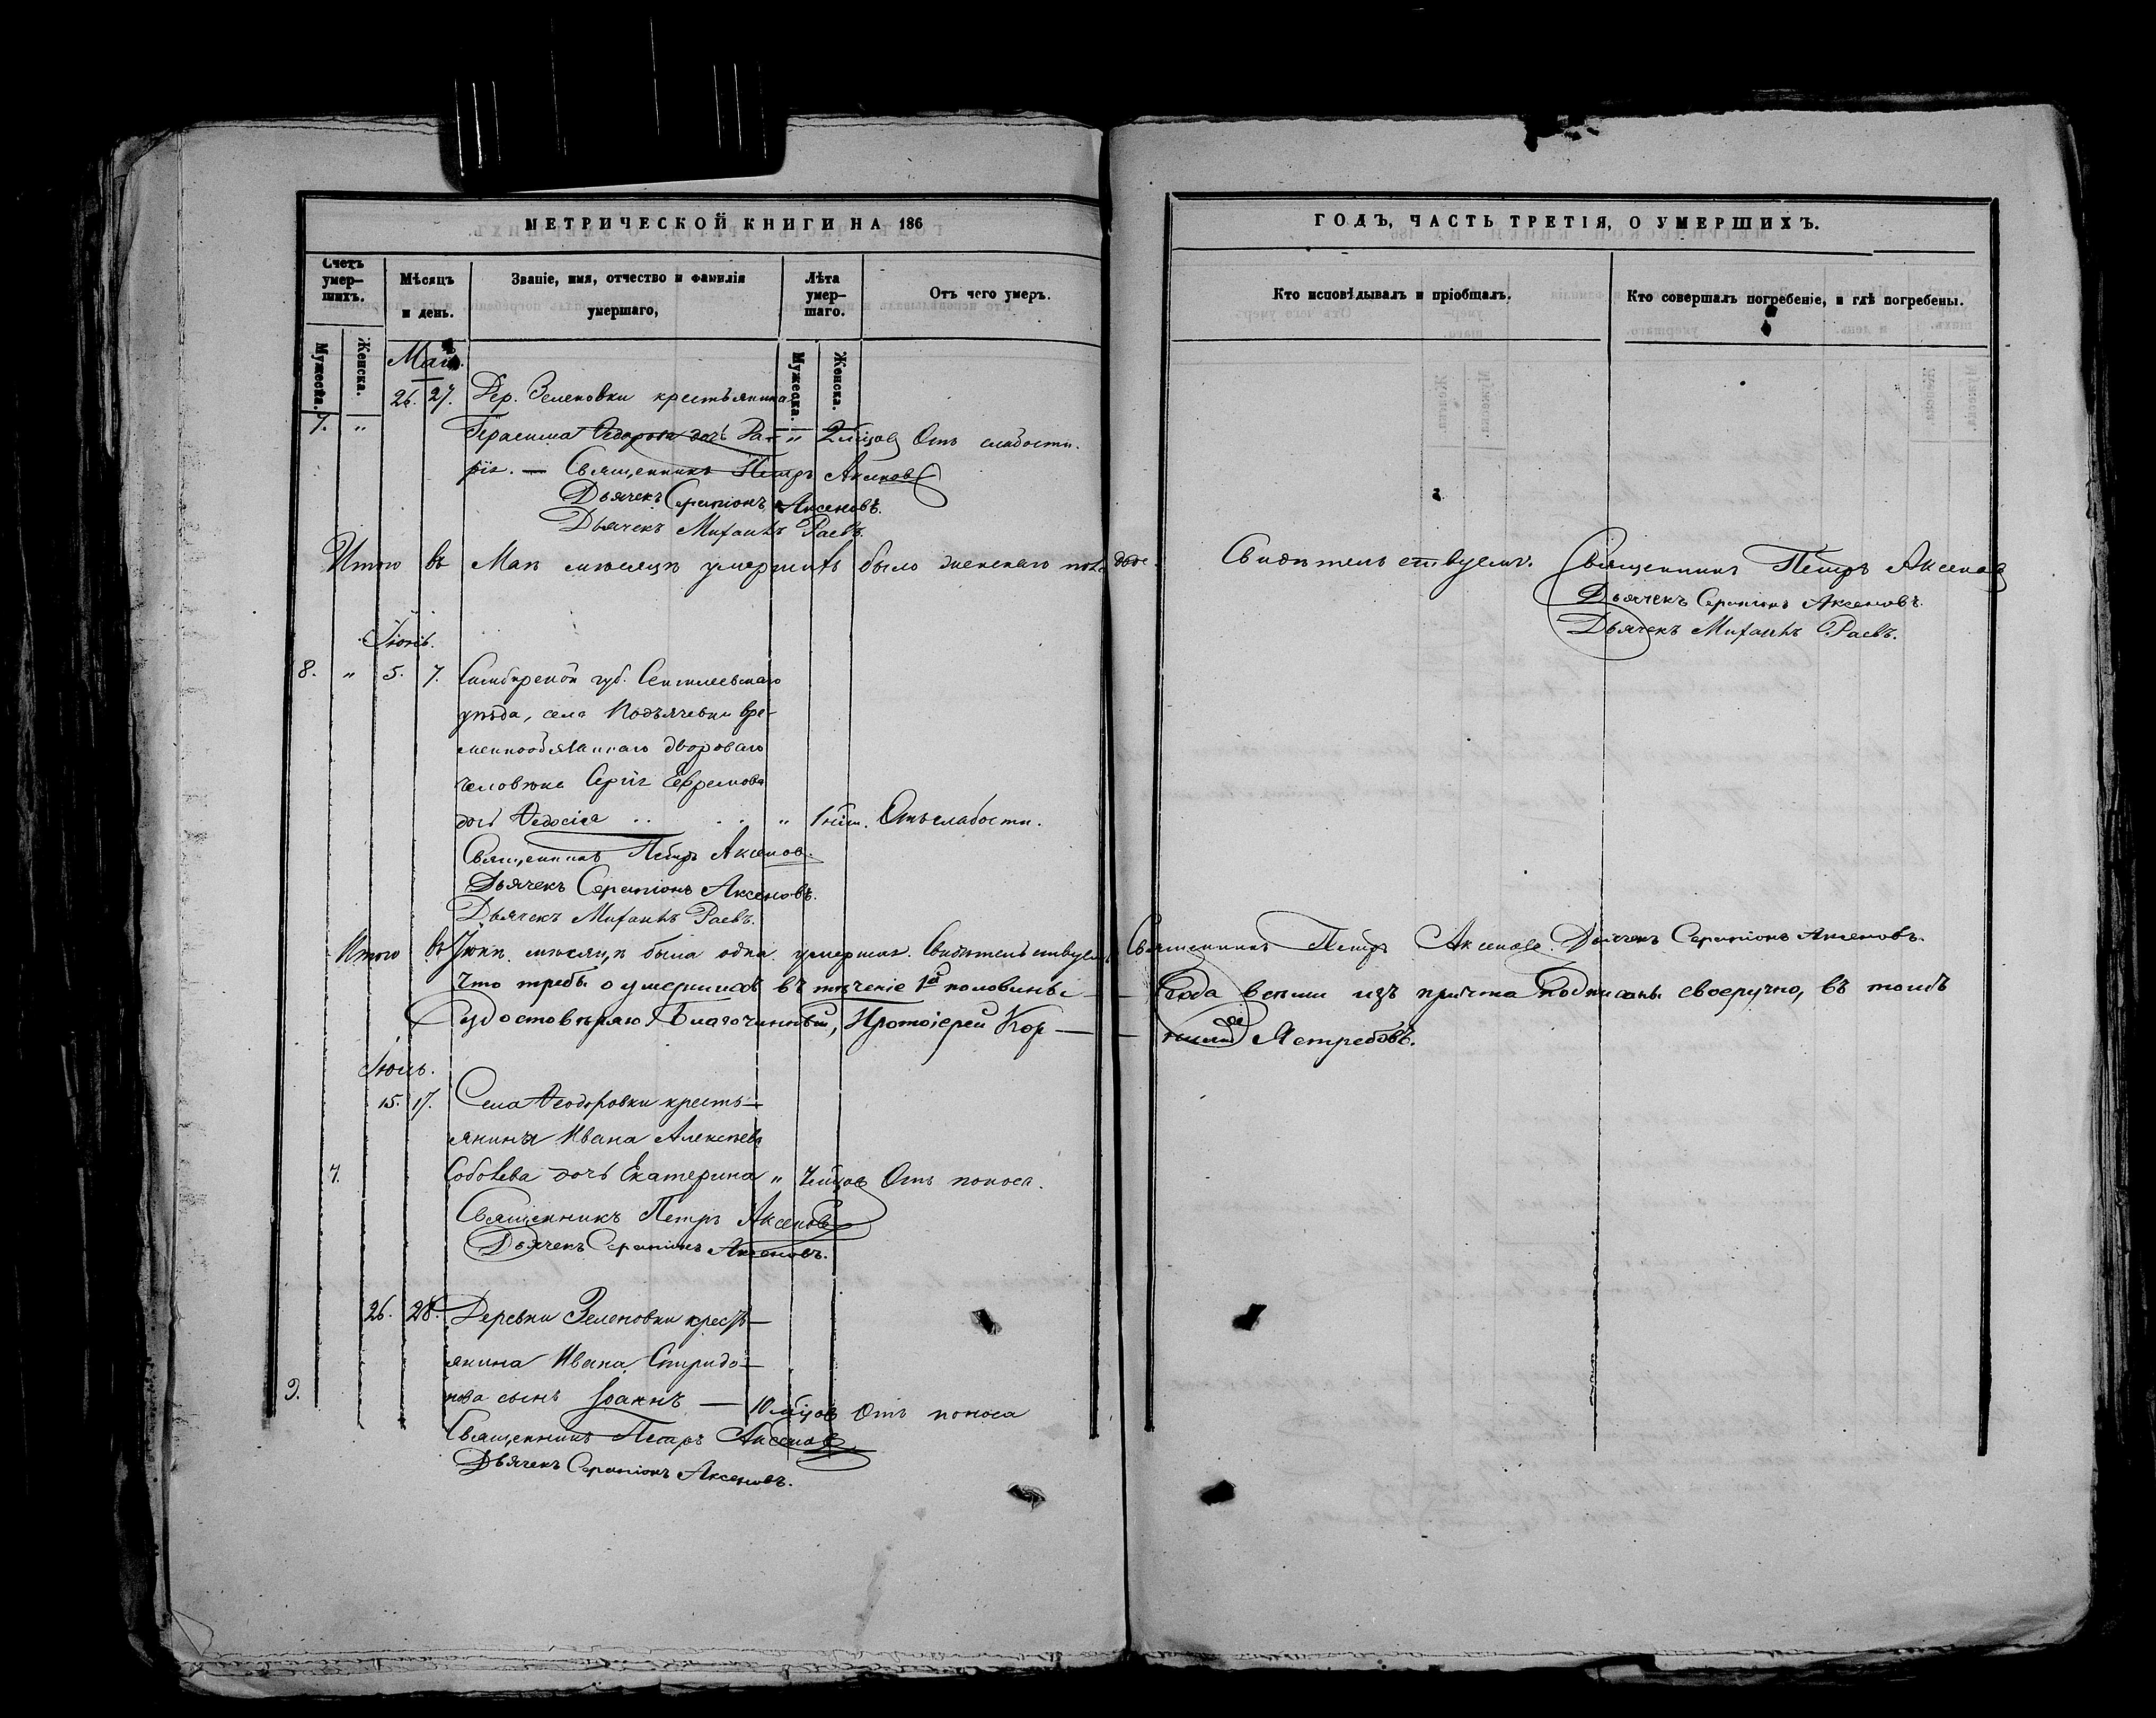 МЕТРИЧЕСКОЙ КНИГИ НА 186
Счетъ умер-шихъ.
Мѣсяцъ и день.
Званіе, имя, отчество и фамилія умершаго,
Лѣта умер-шаго.
Отъ чего умеръ.
Мужеска.
Женска.
Мужеска.
Женска.
Маій.
26. 27. Дер. Зеленовки крестьянина
7. " Герасима Ѳедорова дочь Да- " 2 мѣсяцовъ Отъ слабости.
рія. — Священникъ Петръ Аксеновъ
Дьячекъ Серапіонъ Аксеновъ.
Дьячекъ Михаилъ Раевъ.
Итого въ Маѣ мѣсяцѣ умершихъ было женскаго пола двое.
Іюнь.
8. " 5. 7. Симбирской губ. Сенгилеевскаго
уѣзда, села Подъячевки вре-
меннообязаннаго двороваго
человѣка Сергія Ефремова
дочь Ѳедосія " 1 нѣд. Отъ слабости.
Священникъ Петръ Аксенов.
Дьячекъ Серапіонъ Аксеновъ.
Дьячекъ Михаилъ Раевъ.
Итого въ Іюнѣ мѣсяцѣ была одна умершая. Свидѣтельствуемъ
Что требы о умершихъ въ теченіе 1й половины
удостовѣряю Благочинный, Протоіерей Кор-
Іюль.
15. 17. Села Ѳеодоровки кресть-
янина Ивана Алексѣева
7. Соболева дочь Екатерина " мѣсяцовъ Отъ поноса.
Священникъ Петръ Аксеновъ
Дьячекъ Серапіонъ Аксеновъ.
26. 28. Деревни Зеленовки крестъ-
янина Ивана Спиридо-
9. нова сынъ Іоаннъ — 10 мѣсяцовъ Отъ поноса
Священникъ Петръ Аксеновъ
Дьячекъ Серапіонъ Аксеновъ.
ГОДЪ, ЧАСТЬ ТРЕТІЯ, О УМЕРШИХЪ.
Кто исповѣдывалъ и пріобщалъ.
Кто совершалъ погребеніе, и гдѣ погребены.
Свидѣтельствуемъ. Священникъ Петръ Аксеновъ
Дьячекъ Серапіонъ Аксеновъ.
Дьячекъ Михаилъ Раевъ.
Священникъ Петръ Аксеновъ. Дьячекъ Серапіонъ Аксеновъ.
года всѣми изъ причта подписаны своеручно, въ томъ
нилій Ястребовъ.